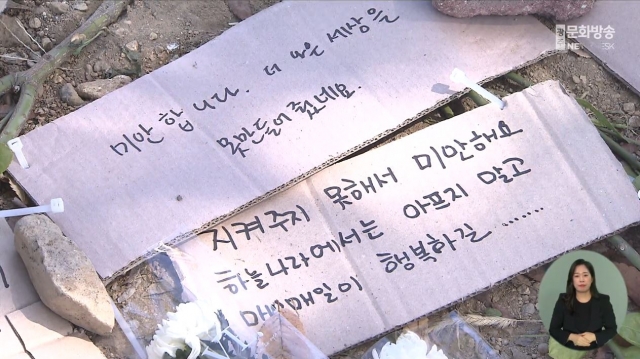 문화방송
미안합니다. 더 나은 세상을
못만들어 줬네요.
지켜주지 못해서 미안해요
하늘나라에서는 아프지 말고
매일매일이 행복하길.......